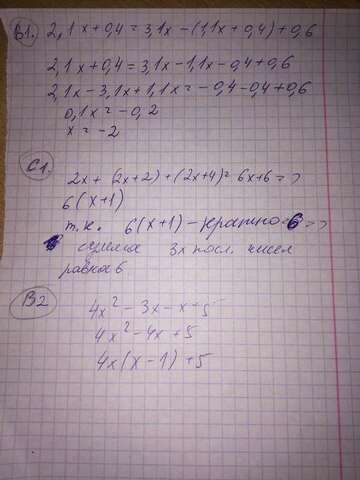 В1. 2,1x+0,4=3,1x-(1,1x+0,4)+0,6
2,1x+0,4=3,1x-1,1x-0,4+0,6
2,1x-3,1x+1,1x=-0,4-0,4+0,6
0,1x=-0,2
x=-2
С1.
2x+(2x+2)+(2x+4)=6x+6=>
6(x+1)
т.к. 6(x+1)-кратно 6=>
сумма 3х посл. чисел
равна 6.
В2
4x²-3x-x+5
4x²-4x+5
4x(x-1)+5